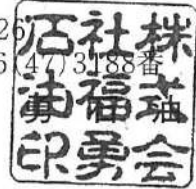 26
6(47)3188番
勇 油
株式会
社福勇
石油印